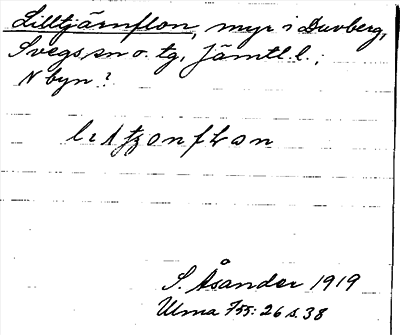 Lilltjärnflon, myr i Duvberg,
Svegs sn o. tg, Jämtl. l.;
N byn?
S. Åsander 1919
Ulma 755: 26 s. 38